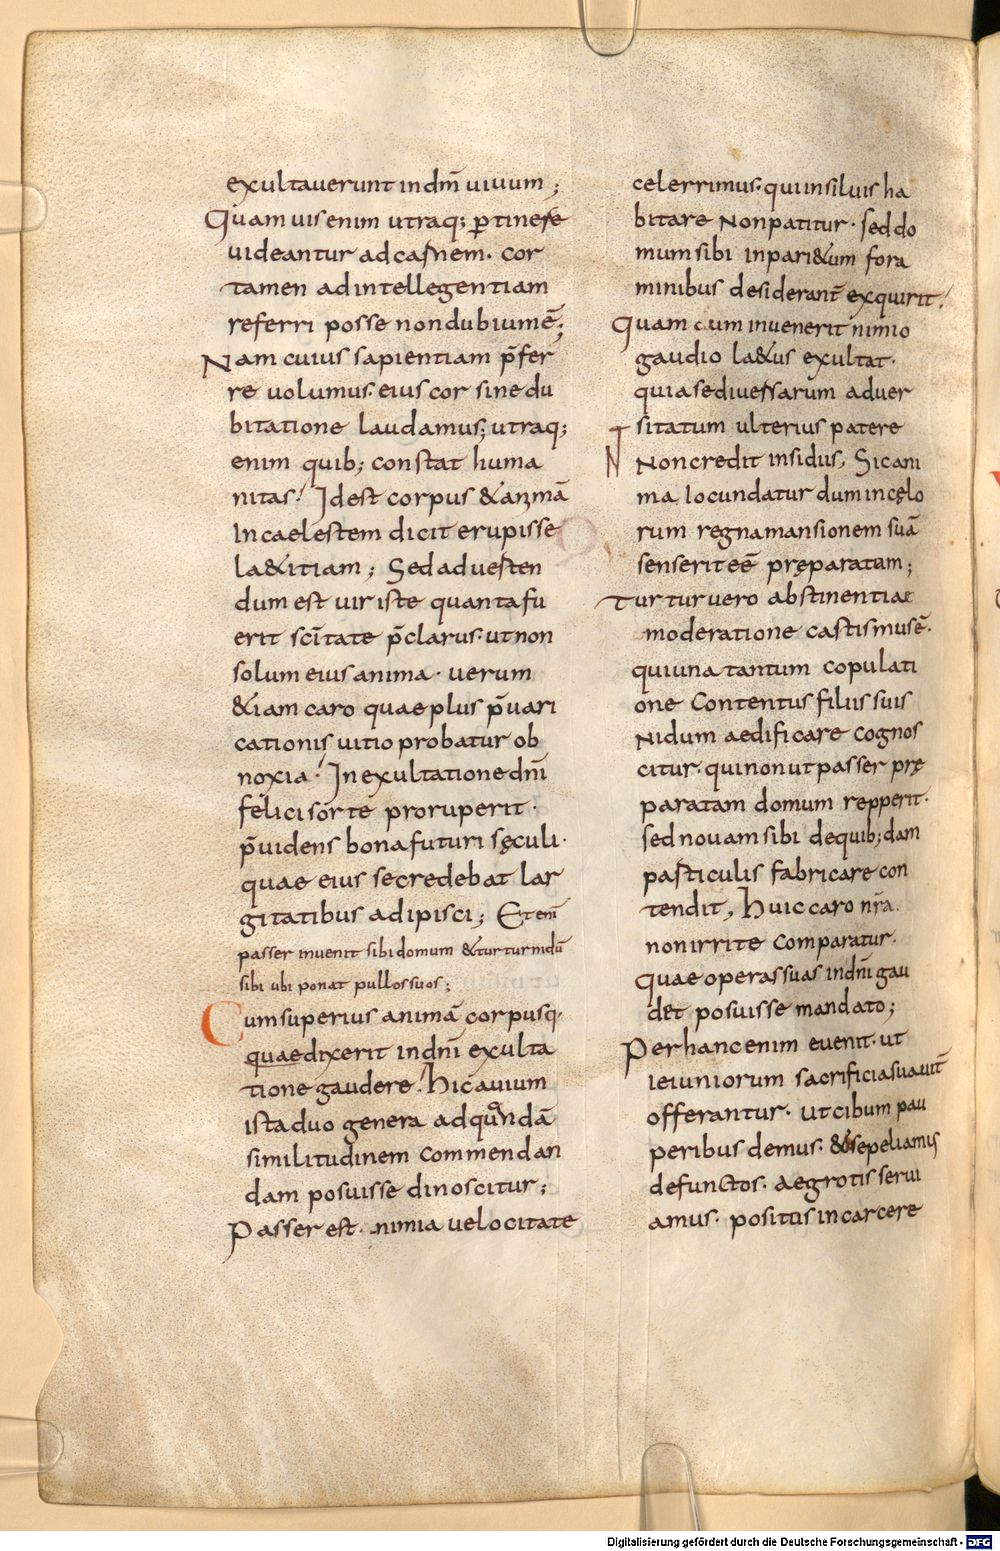 exultauerunt in dm̄ uiuum;
Quam uis enim utraq; ꝑtinere
uideantur ad carnem. cor
tamen ad intellegentiam
referri posse non dubium ē;
Nam cuius sapientiam p̄fer
re uolumus. eius cor sine du
bitatione laudamus; utraq;
enim quib; constat huma
nitas! Id est corpus & animā
In caelestem dicit erupisse
la&itiam; Sed aduerten
dum est uir iste quanta fu
erit sc̄itate p̄clarus. ut non
solum eius anima. uerum
&iam caro quae plus p̄uari
cationis uitio probatur ob
noxia! In exultatione dn̄i
felici sorte proruperit.
p̄uidens bona futuri sęculi.
quae eius se credebat lar
gitatibus adipisci; Etenī
passer inuenit sibi domum & turtur nidū
sibi ubi ponat pullos suos;
Cum superius animā corpusq.
quae dixerit in dn̄i exulta
tione gaudere. hic auium
ista duo genera ad quandā
similitudinem commendan
dam posuisse dinoscitur;
Passer est. nimia uelocitate
celerrimus. qui in siluis ha
bitare Non patitur. sed do
mum sibi in pari&um fora
minibus desiderant̄ exquirit!
Quam cum inuenerit nimio
gaudio la&us exultat.
quia se diuersarum aduer
sitatum ulterius patere
Non credit insidus, Sic ani
ma Iocundatur dum in cęlo
rum regna mansionem suā
senserit eē pręparatam;
Turtur uero abstinentiae
moderatione castismus ē.
qui una tantum copulati
one Contentus filiis suis
Nidum aedificare cognos
citur. qui non ut passer prę
paratam domum repperit.
sed nouam sibi de quib; dam
pasticulis fabricare con
tendit, huic caro nr̄a.
non irrite comparatur.
Quae operas suas in dn̄i gau
det posuisse mandato;
Per hanc enim euenit. ut
ieiuniorum sacrificia suauit̄
offerantur. ut cibum pau
peribus demus. & sepeliamus
defunctos. aegrotis serui
amus. positus in carcere
Digitalisierung gefördert durch die Deutsche Forschungsgemeinschaft - DFG